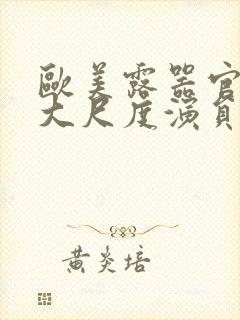 歐美露器官
大尺度演員
黃炎培